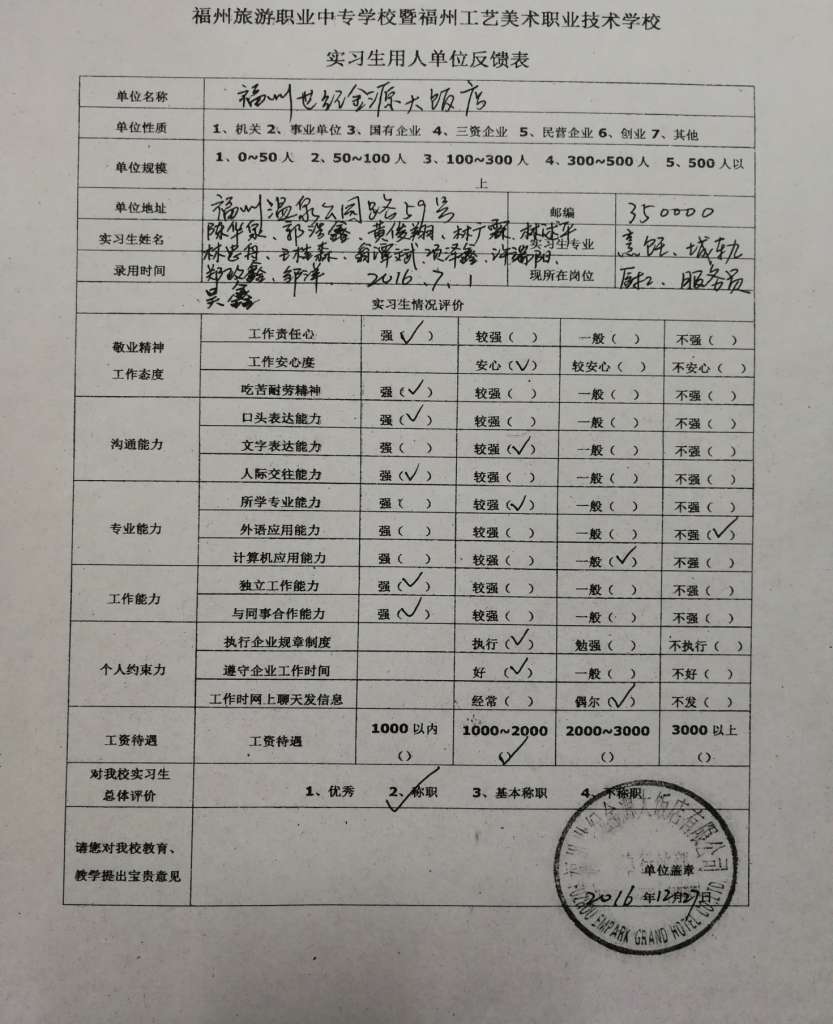 福州旅游职业中专学校暨福州工艺美术职业技术学校
实习生用人单位反馈表
单位名称 福州世纪金源大饭店
单位性质 1、机关 2、事业单位 3、国有企业 4、三资企业 5、民营企业 6、创业 7、其他
单位规模 1、0~50人 2、50~100人 3、100~300人 4、300~500人 5、500人以
上
单位地址 福州温泉公园路59号 邮编 350000
实习生姓名 郭 鑫、黄俊翔、林广 实习生专业 烹饪、城轨
林 、王 森、 、 泽鑫、许瑞阳、
录用时间 鑫、邹洋 2016.7.1 现所在岗位 服务员
吴鑫
实习生情况评价
敬业精神
工作态度
工作责任心 强(✓) 较强( ) 一般( ) 不强( )
工作安心度 安心(✓) 较安心( ) 不安心( )
吃苦耐劳精神 强(✓) 较强( ) 一般( ) 不强( )
沟通能力
口头表达能力 强(✓) 较强( ) 一般( ) 不强( )
文字表达能力 强( ) 较强(✓) 一般( ) 不强( )
人际交往能力 强(✓) 较强( ) 一般( ) 不强( )
专业能力
所学专业能力 强( ) 较强(✓) 一般( ) 不强( )
外语应用能力 强( ) 较强( ) 一般( ) 不强(✓)
计算机应用能力 强( ) 较强( ) 一般(✓) 不强( )
工作能力
独立工作能力 强(✓) 较强( ) 一般( ) 不强( )
与同事合作能力 强(✓) 较强( ) 一般( ) 不强( )
个人约束力
执行企业规章制度 执行(✓) 勉强( ) 不执行( )
遵守企业工作时间 好(✓) 一般( ) 不好( )
工作时网上聊天发信息 经常( ) 偶尔(✓) 不发( )
工资待遇 工资待遇 1000以内 1000~2000 2000~3000 3000以上
() (✓) () ()
对我校实习生
总体评价
1、优秀 2、称职 ✓ 3、基本称职 4、不称职
请您对我校教育、
教学提出宝贵意见
福州世纪金源大饭店有限公司
单位盖章
2016年12月27日
FUZHOU EMPARK GRAND HOTEL CO.LTD